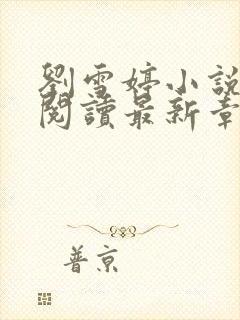 劉雪婷小說
閱讀最新章
普京